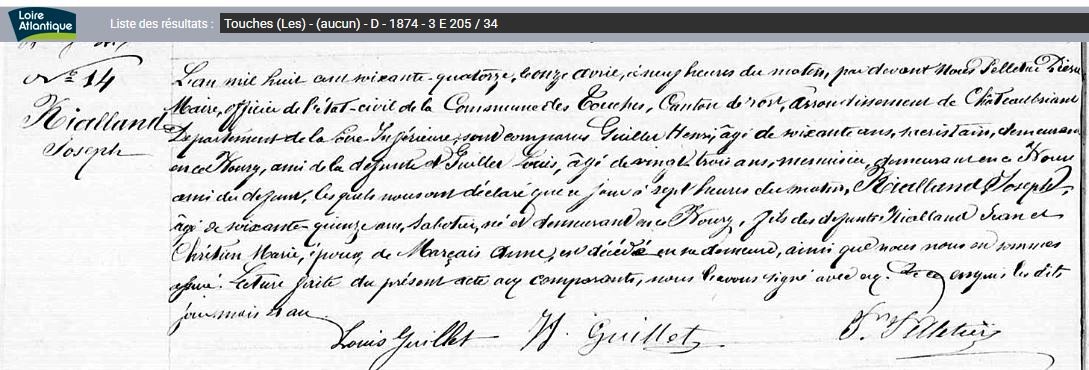 Loire
Atlantique
Liste des résultats : Touches (Les) - (aucun) - D - 1874 - 3 E 205 / 34
N° 14
Rialland
Joseph
L'an mil huit cent soixante-quatorze, le onze avril, à neuf heures du matin, par devant Nous Pelletier
Maire, officier de l'état-civil de la Commune des Touches, Canton de Nort, arrondissement de Châteaubriand
Département de la Loire Inférieure, sont comparus Guillet Henri, âgé de soixante ans, sacristain, demeurant
en ce Bourg, ami de la défunte et Guillet Louis, âgé de vingt trois ans, menuisier, demeurant en ce Bourg
ami du défunt, lesquels nous ont déclaré que ce jour à sept heures du matin, Rialland Joseph
âgé de soixante-quinze ans, sabotier, né et demeurant en ce Bourg, fils des défunts Rialland Jean et
Chrétien Marie, époux de Marçais Anne, est décédé en sa demeure, ainsi que nous nous en sommes
assuré. Lecture faite du présent acte aux comparants, nous l'avons signé avec eux. De ce enquis les dits
jour mois et an
Louis Guillet H. Guillot Pelletier